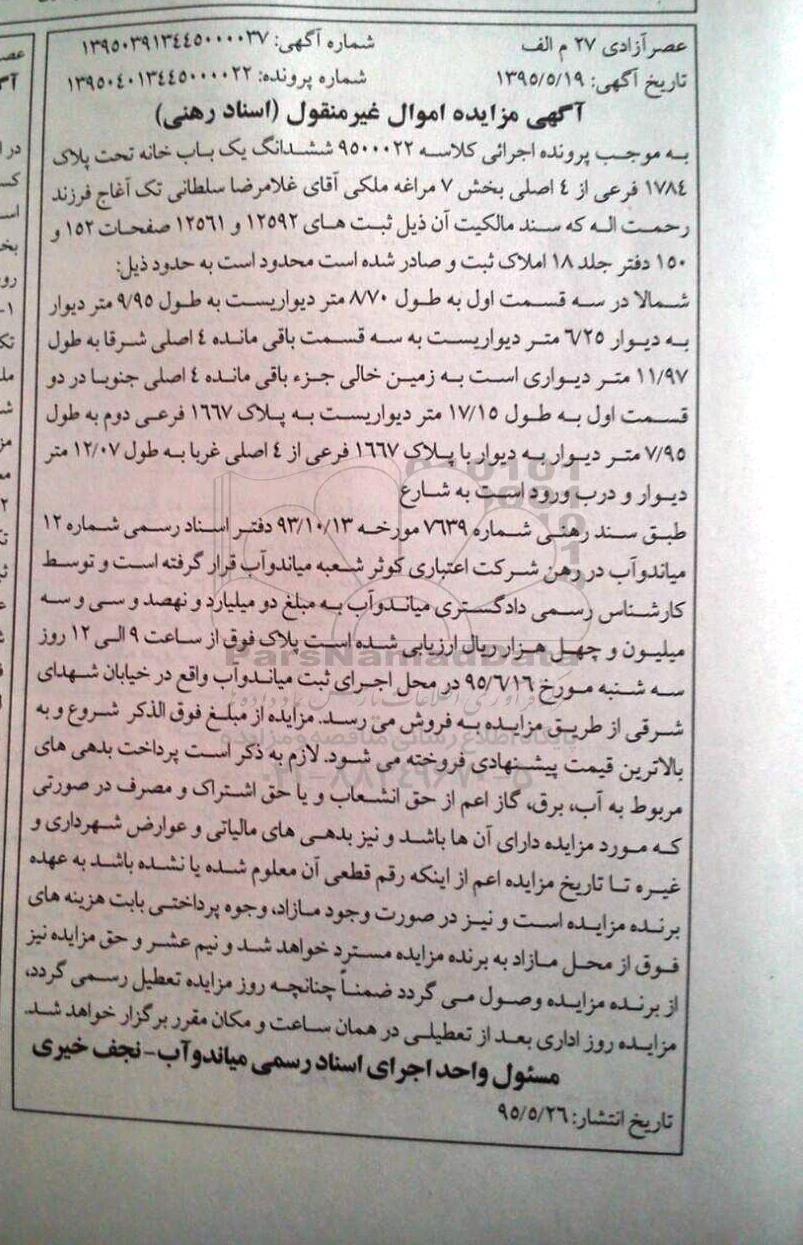 عصر آزادی ۲۷ م الف شماره آگهی: ۱۳۹۵۰۳۹۱۳۴۴۵۰۰۰۰۳۷
تاریخ آگهی: ۱۳۹۵/۵/۱۹ شماره پرونده: ۱۳۹۵۰۴۰۱۳۴۴۵۰۰۰۰۲۲
آگهی مزایده اموال غیرمنقول (اسناد رهنی)
به موجب پرونده اجرائی کلاسه ۹۵۰۰۰۲۲ ششدانگ یک باب خانه تحت پلاک
۱۷۸۴ فرعی از ٤ اصلی بخش ۷ مراغه ملکی آقای غلامرضا سلطانی تک آغاج فرزند
رحمت اله که سند مالکیت آن ذیل ثبت های ۱۲۵۹۲ و ۱۲۵۶۱ صفحات ۱۵۲ و
۱۵۰ دفتر جلد ۱۸ املاک ثبت و صادر شده است محدود است به حدود ذیل:
شمالا در سه قسمت اول به طول ۸/۷۰ متر دیواریست به طول ۹/۹۵ متر دیوار
به دیوار ۶/۲۵ متر دیواریست به سه قسمت باقی مانده ٤ اصلی شرقا به طول
۱۱/۹۷ متر دیواری است به زمین خالی جزء باقی مانده ٤ اصلی جنوبا در دو
قسمت اول به طول ۱۷/۱۵ متر دیواریست به پلاک ۱۶۶۷ فرعی دوم به طول
۷/۹۵ متر دیوار به دیوار با پلاک ۱۶۶۷ فرعی از ٤ اصلی غربا به طول ۱۲/۰۷ متر
دیوار و درب ورود است به شارع
طبق سند رهنی شماره ۷۶۳۹ مورخه ۹۳/۱۰/۱۳ دفتر اسناد رسمی شماره ۱۲
میاندوآب در رهن شرکت اعتباری کوثر شعبه میاندوآب قرار گرفته است و توسط
کارشناس رسمی دادگستری میاندوآب به مبلغ دو میلیارد و نهصد و سی و سه
میلیون و چهل هزار ریال ارزیابی شده است پلاک فوق از ساعت ۹ الی ۱۲ روز
سه شنبه مورخ ۹۵/۶/۱۶ در محل اجرای ثبت میاندوآب واقع در خیابان شهدای
شرقی از طریق مزایده به فروش می رسد. مزایده از مبلغ فوق الذکر شروع و به
بالاترین قیمت پیشنهادی فروخته می شود. لازم به ذکر است پرداخت بدهی های
مربوط به آب، برق، گاز اعم از حق انشعاب و یا حق اشتراک و مصرف در صورتی
که مورد مزایده دارای آن ها باشد و نیز بدهی های مالیاتی و عوارض شهرداری و
غیره تا تاریخ مزایده اعم از اینکه رقم قطعی آن معلوم شده یا نشده باشد به عهده
برنده مزایده است و نیز در صورت وجود مازاد، وجوه پرداختی بابت هزینه های
فوق از محل مازاد به برنده مزایده مسترد خواهد شد و نیم عشر و حق مزایده نیز
از برنده مزایده وصول می گردد ضمناً چنانچه روز مزایده تعطیل رسمی گردد،
مزایده روز اداری بعد از تعطیلی در همان ساعت و مکان مقرر برگزار خواهد شد.
مسئول واحد اجرای اسناد رسمی میاندوآب- نجف خیری
تاریخ انتشار: ۹۵/۵/۲۶
ParsNamadData